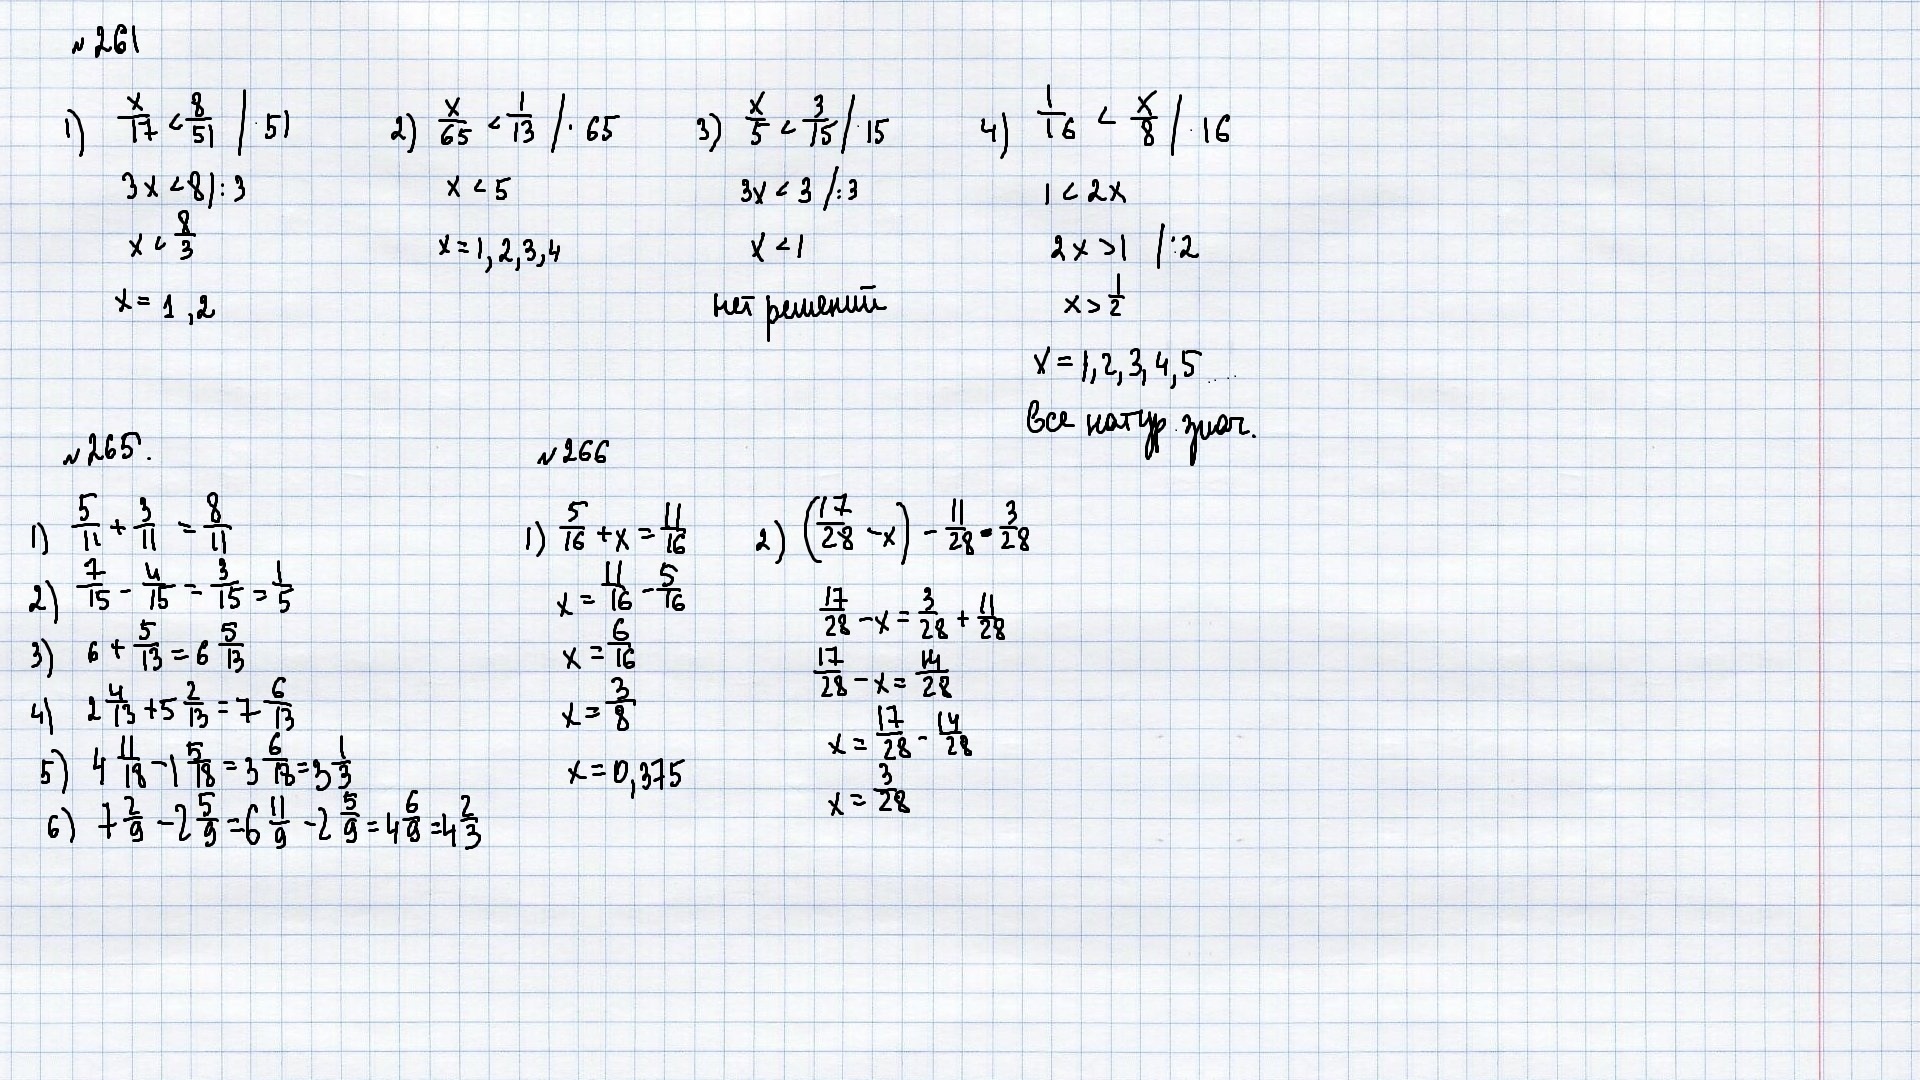 №261
1) x/17 < 8/51 | · 51
3x < 8 | : 3
x < 8/3
x = 1, 2
2) x/65 < 1/13 / · 65
x < 5
x = 1, 2, 3, 4
3) x/5 < 3/15 / · 15
3x < 3 / : 3
x < 1
нет решений
4) 1/16 < x/8 / · 16
1 < 2x
2x > 1 / : 2
x > 1/2
x = 1, 2, 3, 4, 5 ....
все натур. знач.
№265.
1) 5/11 + 3/11 = 8/11
2) 7/15 - 4/15 = 3/15 = 1/5
3) 6 + 5/13 = 6 5/13
4) 2 4/13 + 5 2/13 = 7 6/13
5) 4 11/18 - 1 5/18 = 3 6/18 = 3 1/3
6) 7 2/9 - 2 5/9 = 6 11/9 - 2 5/9 = 4 6/9 = 4 2/3
№266
1) 5/16 + x = 11/16
x = 11/16 - 5/16
x = 6/16
x = 3/8
x = 0,375
2) (17/28 - x) - 11/28 = 3/28
17/28 - x = 3/28 + 11/28
17/28 - x = 14/28
x = 17/28 - 14/28
x = 3/28